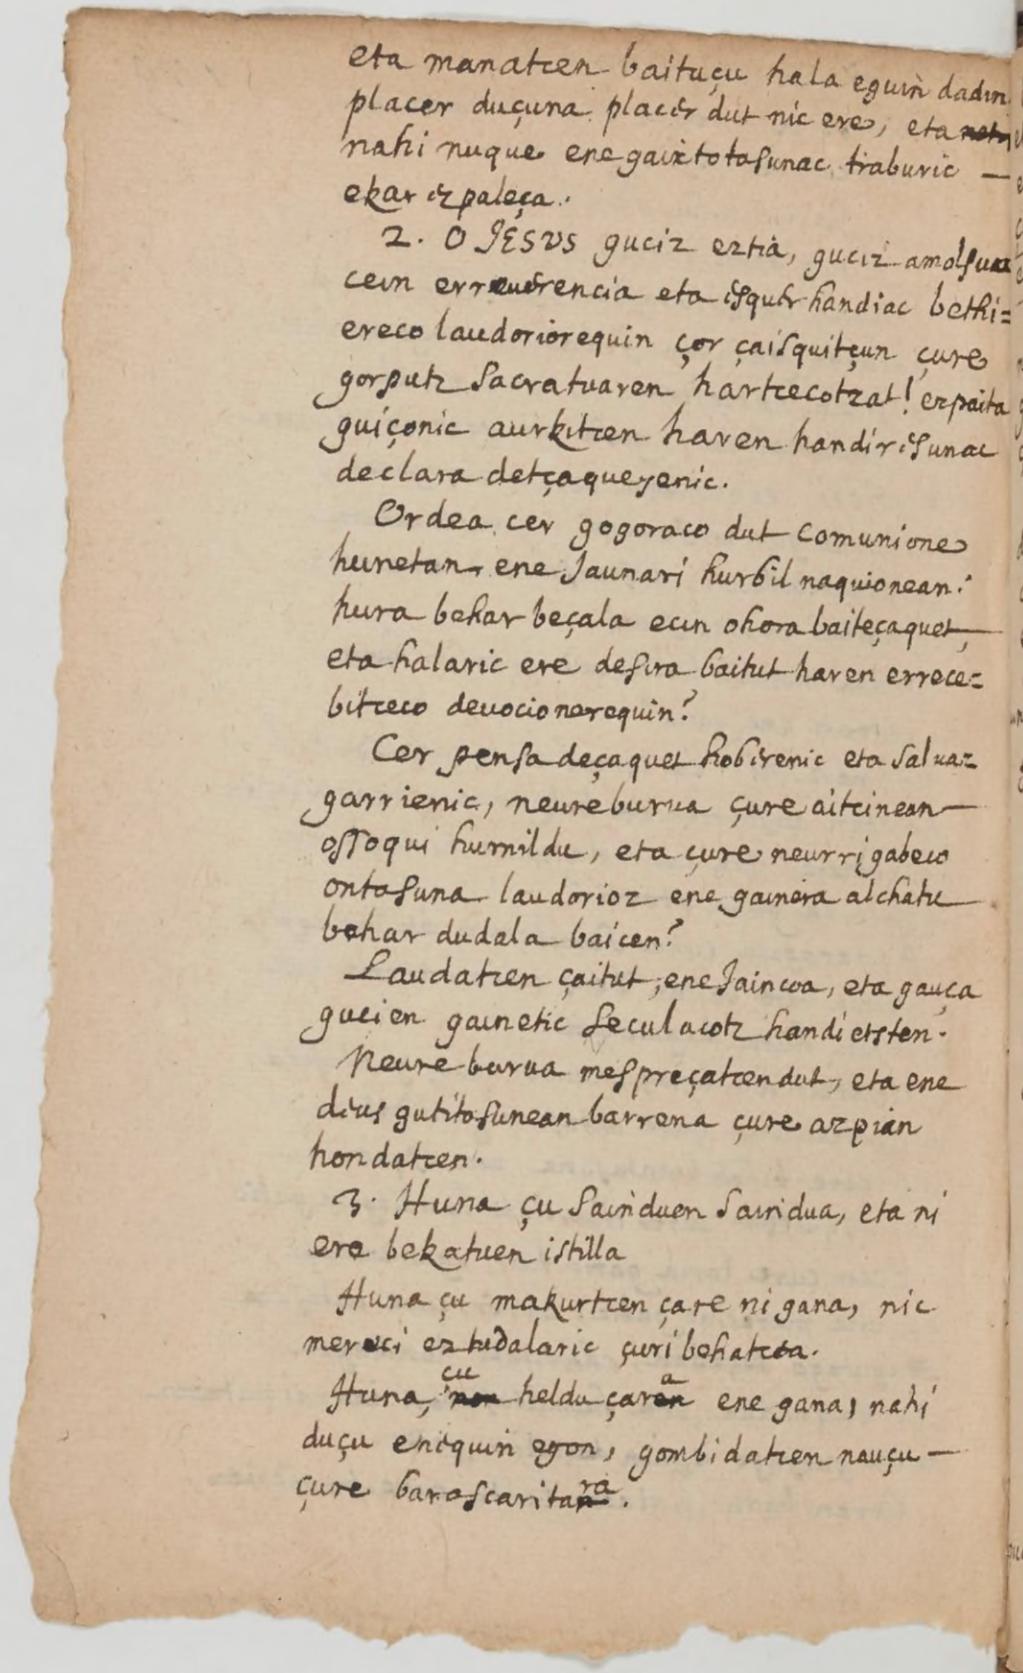 eta manatcen baituçu hala eguin dadin
placer duçuna. placer dut nic ere, eta
nahi nuque ene gaixtotasunac traburic —
ekar ezpaleça.
2. O JESUS guciz eztia, guciz amolsua
cein erreuerencia eta esquer handiac bethi=
ereco laudoriorequin çor çaisquitçun çure
gorputz sacratuaren hartcecotzat! ezpaita
guiçonic aurkitcen haren handiresunac
declara detçaqueyenic.
Ordea cer gogoraco dut comunione
hunetan, ene Jaunari hurbil naquionean?
hura behar beçala ecin ohora baiteçaquet,
eta halaric ere desira baitut haren errece=
bitceco deuocionerequin?
Cer pensa deçaquet hoberenic eta salua=
garrienic, neure burua çure aitcinean —
ossoqui humildu, eta çure neurrigabeco
ontasuna laudorioz ene gainera alchatu
behar dudala baicen?
Laudatcen çaitut, ene Jaincoa, eta gauça
gucien gainetic seculacotz handietsten.
Neure burua mespreçatcen dut, eta ene
deus gutitasunean barrena çure azpian
hondatcen.
3. Huna çu sainduen saindua, eta ni
ere bekatuen istilla
Huna çu makurtcen çare ni gana, nic
mereci ez tudalaric çuri behatcea.
Huna, çu heldu çara ene gana, nahi
duçu enequin egon, gombidatcen nauçu —
çure barascaritara.